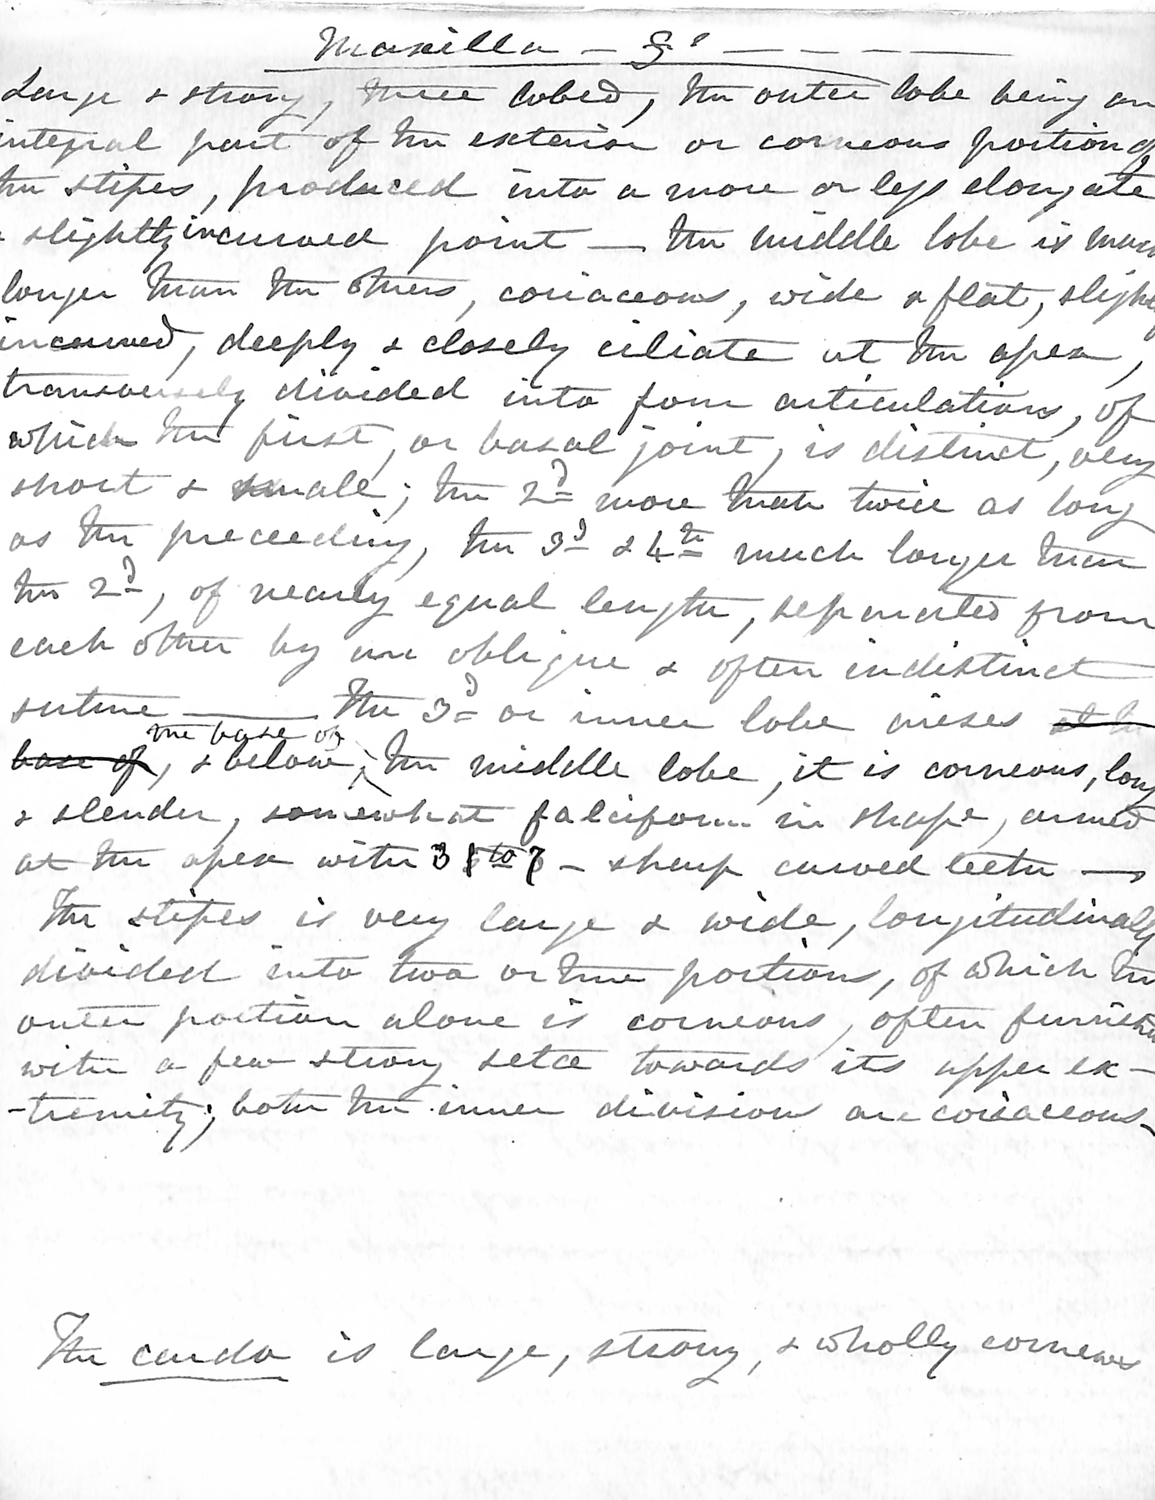 Maxilla — — — — —
Large & strong, three lobed, the outer lobe being an
integral part of the exterior or corneous portion of
the stipes, produced into a more or less elongate
& slightly incurved point — the middle lobe is much
longer than the others, coriaceous, wide & flat, slightly
incurved, deeply & closely ciliate at the apex,
transversely divided into four articulations, of
which the first, or basal joint, is distinct, very
short & small; the 2d more than twice as long
as the preceeding, the 3d & 4th much longer than
the 2d, of nearly equal length, separated from
each other by an oblique & often indistinct
suture —— The 3d or inner lobe arises at the
the base of
base of, & below, the middle lobe, it is corneous, long
& slender, somewhat falciform in shape, armed
at the apex with 3 to — sharp curved teeth —
The stipes is very large & wide, longitudinally
divided into two or three portions, of which the
outer portion alone is corneous, often furnished
with a few strong setae towards its upper ex-
-tremity; both the inner divisions are coriaceous-
The cardo is large, strong, & wholly corneous